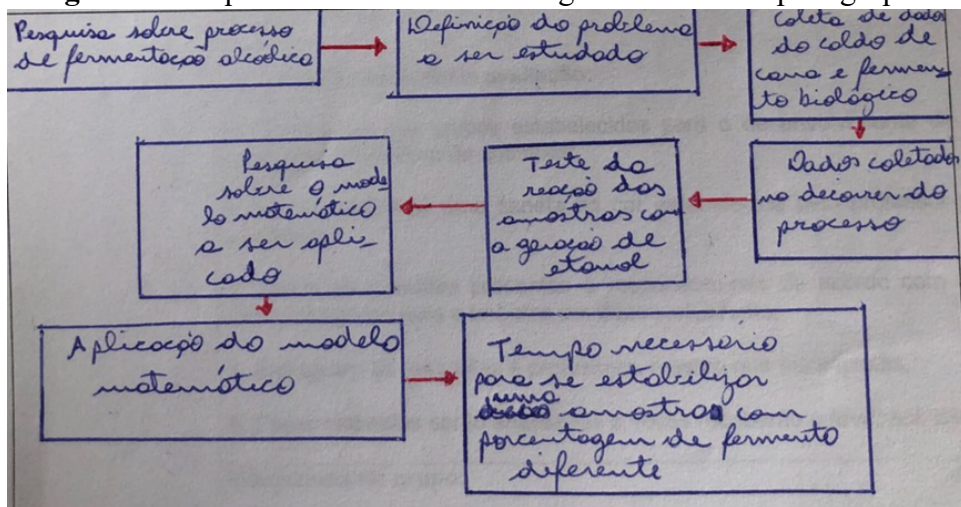 Pesquisa sobre processo
de fermentação alcoólica
Definição do problema
a ser estudado
Coleta de dados
do caldo de
cana e fermen-
to biológico
Dados coletados
no decorrer do
processo
Teste da
reação das
amostras com
a geração de
etanol
Pesquisa
sobre o mode
lo matemático
a ser apli_
cado
Aplicação do modelo
matemático
Tempo necessário
para se estabilizar
uma
amostra com
porcentagem de fermento
diferente